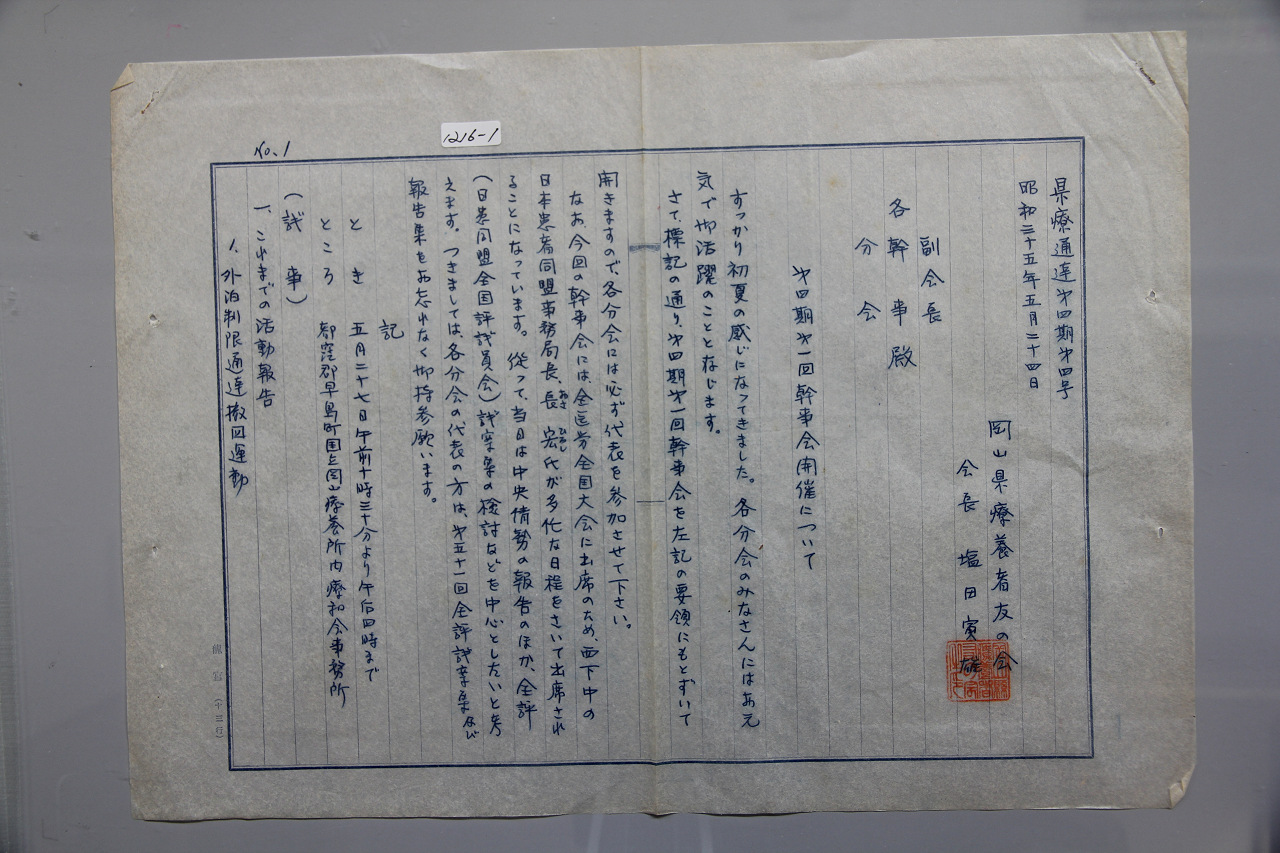 1216-1
No.1
県療通達第四期第四号
昭和三十五年五月二十四日
岡山県療養者友の会
会長 塩田寅雄
副会長
各幹事殿
分会
第四期第一回幹事会開催について
すっかり初夏の感じになってきました。各分会のみなさんにはお元
気で御活躍のことと存じます。
さて、標記の通り、第四期第一回幹事会を左記の要領にもとずいて
開きますので、各分会には必ず代表を参加させて下さい。
なお、今回の幹事会には、全医労全国大会に出席のため、西下中の
日本患者同盟事務局長、長宏氏が多忙な日程をさいて出席され
おさ ひろし
ることになっています。従って、当日は中央情勢の報告のほか、全評
(日患同盟全国評議員会)議案集の検討などを中心としたいと考
えます。つきましては、各分会の代表の方は、第五十一回全評議案集及び
報告集をお忘れなく御持参願います。
記
とき 五月二十七日午前十時三十分より午后四時まで
ところ 都窪郡早島町国立岡山療養所内療和会事務所
(議事)
一、これまでの活動報告
1、外泊制限通達撤回運動
(十三行)